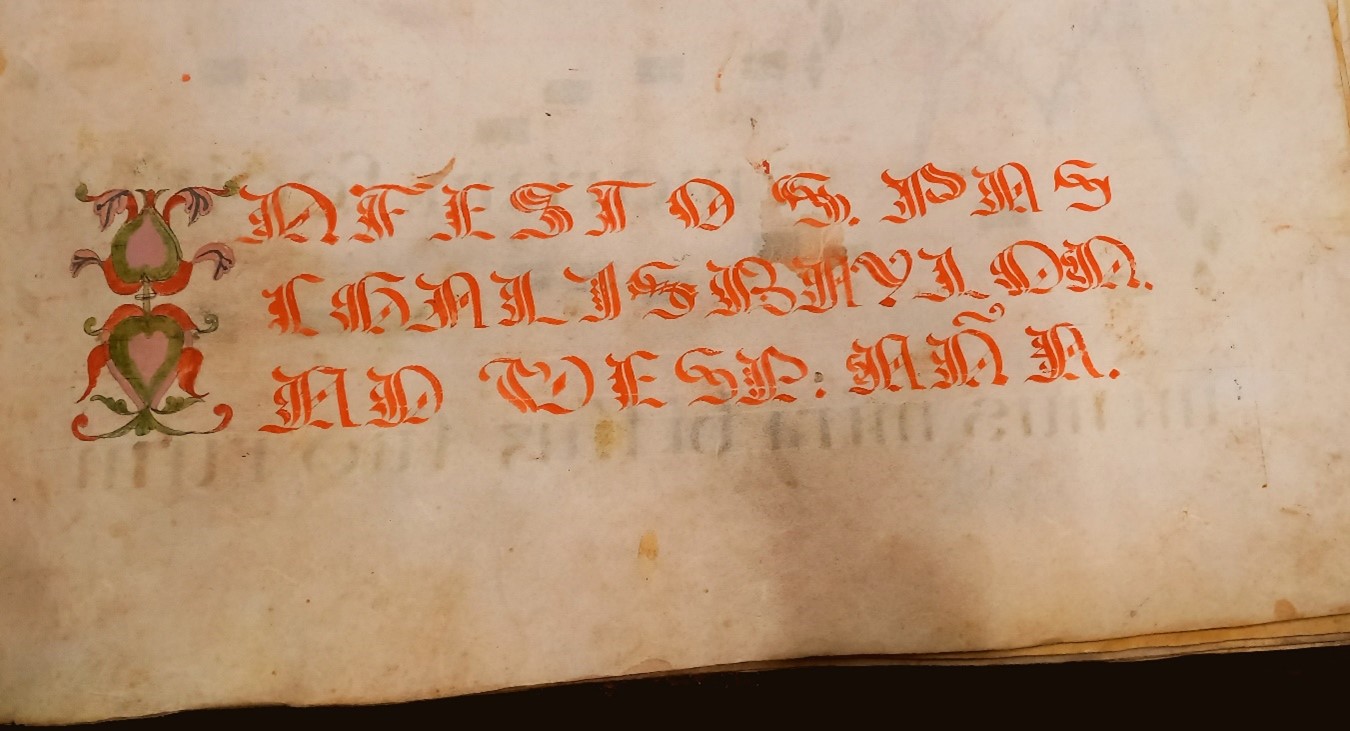 IN FESTO S. PAS
CHALIS BAYLON.
AD VESP. AÑA.